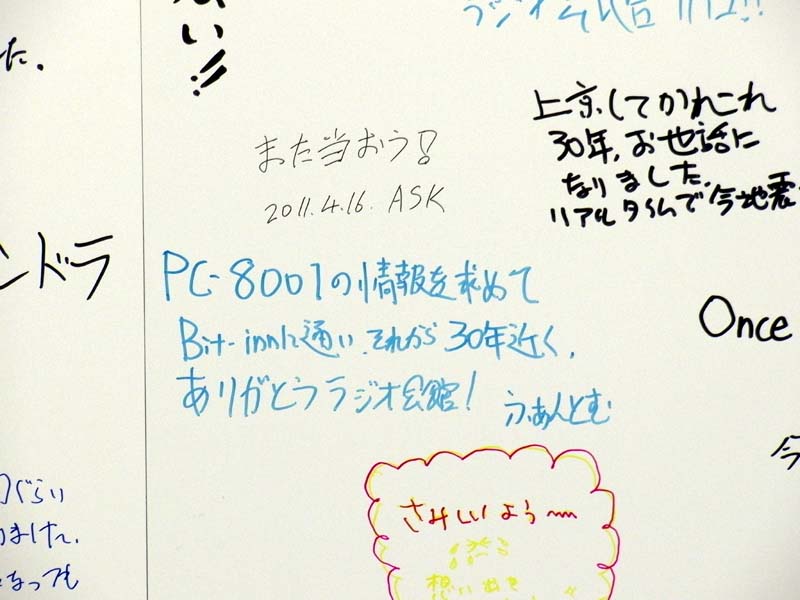 た.
い!!
上京してかれこれ
30年,お世話に
なりました.
リアルタイムで今地震
また当おう!
2011.4.16. ASK
ンドラ
PC-8001の情報を求めて
Bit-innに通い.それから30年近く,
ありがとうラジオ会館!
ふぁんとむ
Once
今
ぐらい
ました.
なっても
さみしいよう〜
想い出を